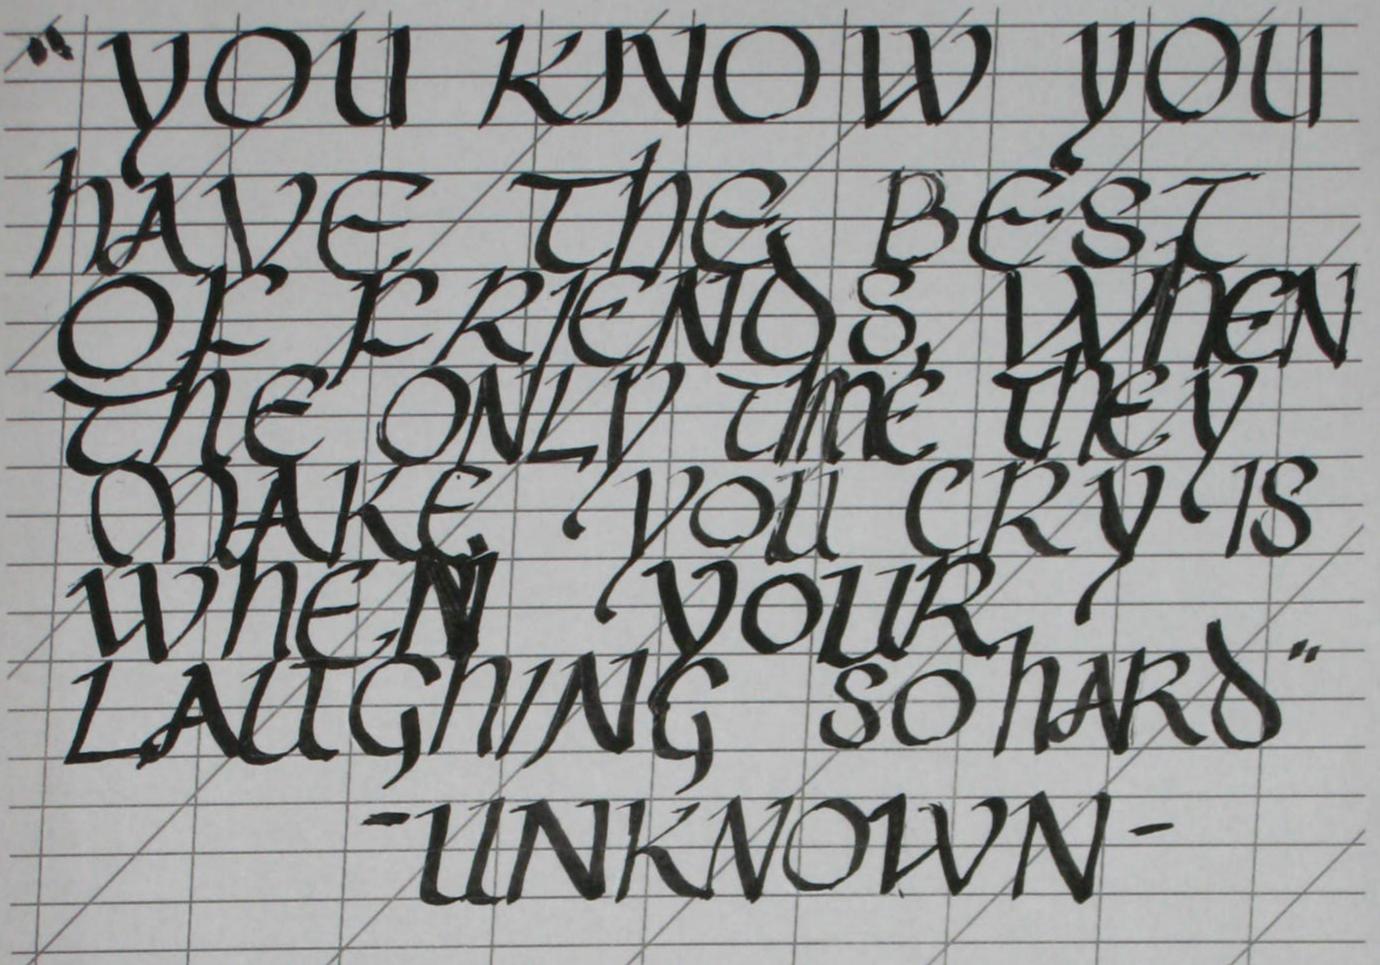 "YOU KNOW YOU
hAVE ThE BEST
OF FRIENDS, WhEN
ThE ONLY TIME ThEY
MAKE YOU CRY IS
WhEN YOUR
LAUGhING SO hARD"
-UNKNOWN-